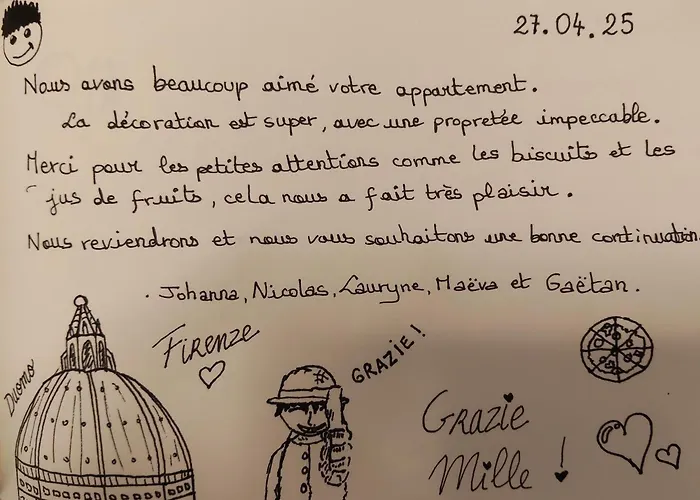 27.04.25
Nous avons beaucoup aimé votre appartement.
La décoration est super, avec une propretée impeccable.
Merci pour les petites attentions comme les biscuits et les
jus de fruits, cela nous a fait très plaisir.
Nous reviendrons et nous vous souhaitons une bonne continuation.
. Johanna, Nicolas, Lauryne, Maëva et Gaëtan.
Firenze
GRAZIE!
Duomo
Grazie
Mille !